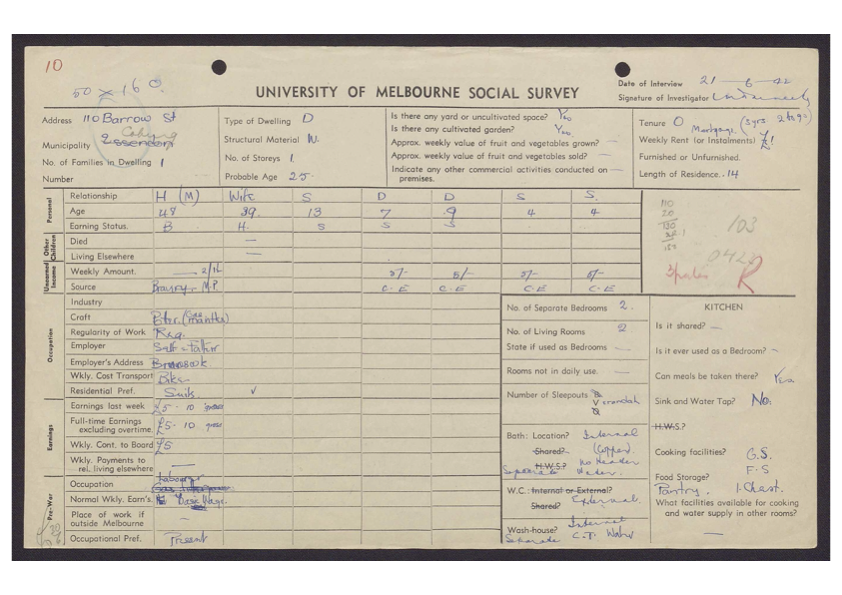 10
50 × 160.
UNIVERSITY OF MELBOURNE SOCIAL SURVEY
Date of Interview 21-6-42
Signature of Investigator
Address 110 Barrow St
Coburg
Municipality Essendon
No. of Families in Dwelling 1
Number
Type of Dwelling D
Structural Material W.
No. of Storeys 1.
Probable Age 25.
Is there any yard or uncultivated space? Yes
Is there any cultivated garden? Yes
Approx. weekly value of fruit and vegetables grown? —
Approx. weekly value of fruit and vegetables sold? —
Indicate any other commercial activities conducted on premises. —
Tenure O Mortgage. (3 yrs.
Weekly Rent (or Instalments)
Furnished or Unfurnished.
Length of Residence. 14
Personal
Relationship H (M) Wife S D D S S.
Age 48 39. 13 7 9 4 4
Earning Status. B H. S S S
Other Children
Died —
Living Elsewhere —
Unearned Income
Weekly Amount. 5/- 5/- 5/- 5/-
Source C.E C.E C.E C.E
Occupation
Industry
Craft
Regularity of Work Reg.
Employer
Employer's Address
Wkly. Cost Transport Bike
Residential Pref. Suits. ✓
Earnings
Earnings last week £5-10 gross
Full-time Earnings excluding overtime. £5-10 gross
Wkly. Cont. to Board £5
Wkly. Payments to rel. living elsewhere —
Pre-War
Occupation Labourer
Normal Wkly. Earn's. Basic Wage.
Place of work if outside Melbourne —
Occupational Pref. Present
110
20
130
103
R
No. of Separate Bedrooms 2.
No. of Living Rooms 2
State if used as Bedrooms —
Rooms not in daily use. —
Number of Sleepouts Verandah
Bath: Location? Internal
Shared? (Copper)
H.W.S? No Heater
Separate Water.
W.C.: Internal or External? External.
Shared?
Wash-house? Internal
Separate C.T. Water
KITCHEN
Is it shared? —
Is it ever used as a Bedroom? —
Can meals be taken there? Yes
Sink and Water Tap? No.
H.W.S.?
Cooking facilities? G.S.
F.S
Food Storage?
Pantry. I-Chest.
What facilities available for cooking and water supply in other rooms?
—